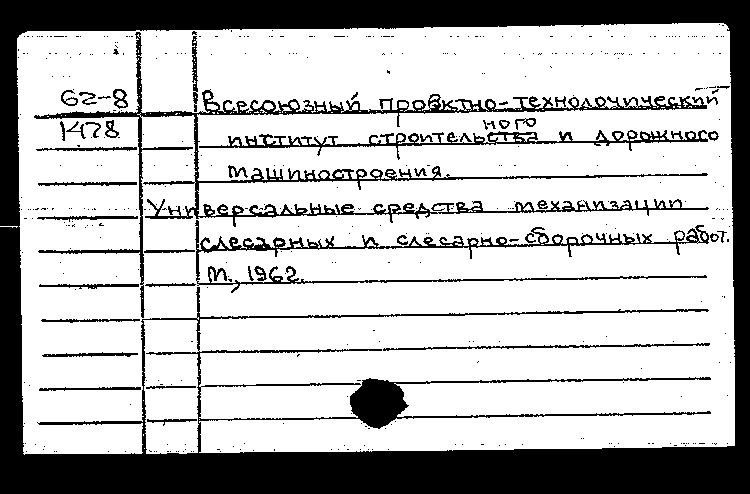 62-8
1478
Всесоюзный проектно-технологический
институт строительного и дорожного
машиностроения.
Универсальные средства механизации
слесарных и слесарно-сборочных работ.
М., 1962.